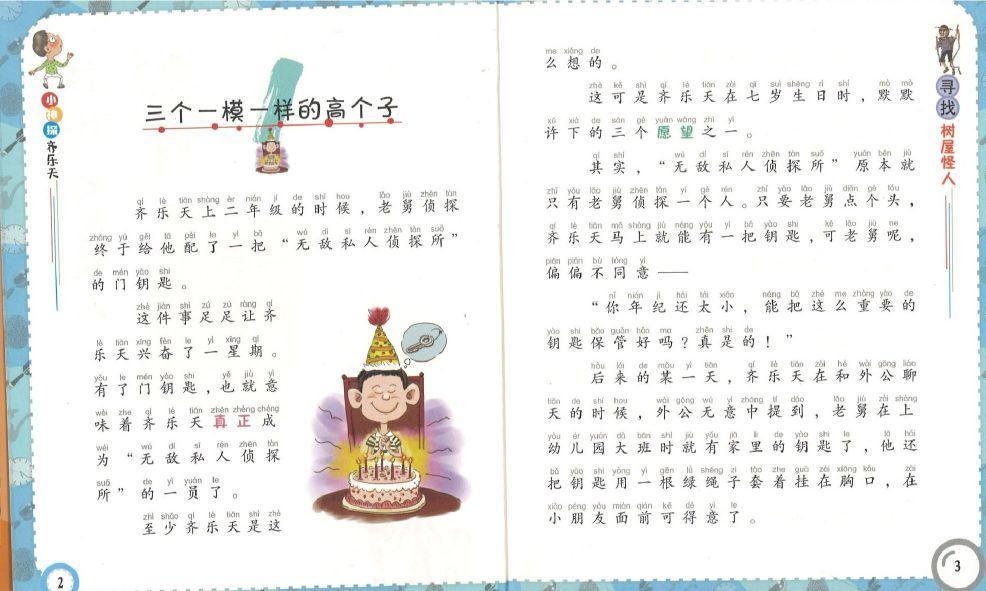 小神探
齐乐天
1
三个一模一样的高个子
qí lè tiān shàng èr nián jí de shí hou lǎo jiù zhēn tàn
齐乐天上二年级的时候，老舅侦探
zhōng yú gěi tā pèi le yì bǎ wú dí sī rén zhēn tàn suǒ
终于给他配了一把“无敌私人侦探所”
de mén yào shi
的门钥匙。
zhè jiàn shì zú zú ràng qí
这件事足足让齐
lè tiān xīng fèn le yì xīng qī
乐天兴奋了一星期。
yǒu le mén yào shi yě jiù yì
有了门钥匙，也就意
wèi zhe qí lè tiān zhēn zhèng chéng
味着齐乐天真正成
wéi wú dí sī rén zhēn tàn
为“无敌私人侦探
suǒ de yì yuán le
所”的一员了。
zhì shǎo qí lè tiān shì zhè
至少齐乐天是这
2
me xiǎng de
么想的。
zhè kě shì qí lè tiān zài qī suì shēng rì shí mò mò
这可是齐乐天在七岁生日时，默默
xǔ xià de sān gè yuàn wàng zhī yī
许下的三个愿望之一。
qí shí wú dí sī rén zhēn tàn suǒ yuán běn jiù
其实，“无敌私人侦探所”原本就
zhǐ yǒu lǎo jiù zhēn tàn yí gè rén zhǐ yào lǎo jiù diǎn gè tóu
只有老舅侦探一个人。只要老舅点个头，
qí lè tiān mǎ shàng jiù néng yǒu yì bǎ yào shi kě lǎo jiù ne
齐乐天马上就能有一把钥匙，可老舅呢，
piān piān bù tóng yì
偏偏不同意——
nǐ nián jì hái tài xiǎo néng bǎ zhè me zhòng yào de
“你年纪还太小，能把这么重要的
yào shi bǎo guǎn hǎo ma zhēn shi de
钥匙保管好吗？真是的！”
hòu lái de mǒu yì tiān qí lè tiān zài hé wài gōng liáo
后来的某一天，齐乐天在和外公聊
tiān de shí hou wài gōng wú yì zhōng tí dào lǎo jiù zài shàng
天的时候，外公无意中提到，老舅在上
yòu ér yuán dà bān shí jiù yǒu jiā li de yào shi le tā hái
幼儿园大班时就有家里的钥匙了，他还
bǎ yào shi yòng yì gēn lǜ shéng zi tào zhe guà zài xiōng kǒu zài
把钥匙用一根绿绳子套着挂在胸口，在
xiǎo péng yǒu miàn qián kě dé yì le
小朋友面前可得意了。
寻找
树屋怪人
3